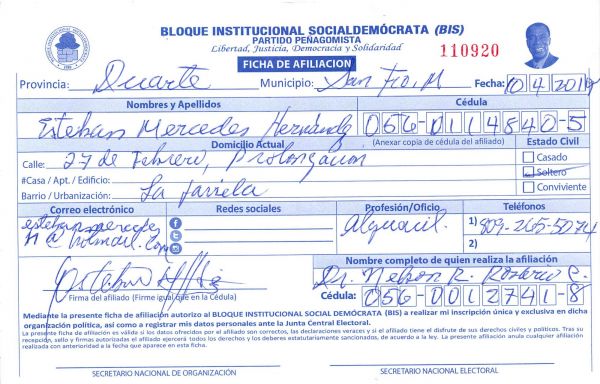 BLOQUE INSTITUCIONAL SOCIALDEMÓCRATA (BIS)
PARTIDO PEÑAGOMISTA
Libertad, Justicia, Democracia y Solidaridad
FICHA DE AFILIACION
110920
Provincia: Duarte Municipio: San Fco. M Fecha: 10 4 2019
Nombres y Apellidos Cédula
Esteban Mercedes Hernández 056-0114840-5
Domicilio Actual (Anexar copia de cédula del afiliado) Estado Civil
Calle: 27 de Febrero, Prolongacion
Casado
#Casa / Apt. / Edificio:
Soltero
Barrio / Urbanización: La
Conviviente
Correo electrónico Redes sociales Profesión/Oficio Teléfonos
esteban mercedes
h @ hotmail.com
Alguacil. 1) 809-265-5074
2)
Nombre completo de quien realiza la afiliación
Dr. Nelson R. Rosario C.
Firma del afiliado (Firme igual que en la Cédula)
Cédula: 056-0012741-8
Mediante la presente ficha de afiliación autorizo al BLOQUE INSTITUCIONAL SOCIAL DEMÓCRATA (BIS) a realizar mi inscripción única y exclusiva en dicha
organización política, así como a registrar mis datos personales ante la Junta Central Electoral.
La presente ficha de afiliación es válida si los datos ofrecidos por el afiliado son correctos, las declaraciones veraces y si el afiliado tiene el disfrute de sus derechos civiles y políticos. Tras su
recepción, sello y firmas autorizadas el afiliado ejercerá todos los derechos y los deberes estatutariamente sancionados, de acuerdo a la ley. La presente afiliación anula cualquier afiliación
realizada con anterioridad a la fecha que aparece en esta ficha.
SECRETARIO NACIONAL DE ORGANIZACIÓN SECRETARIO NACIONAL ELECTORAL